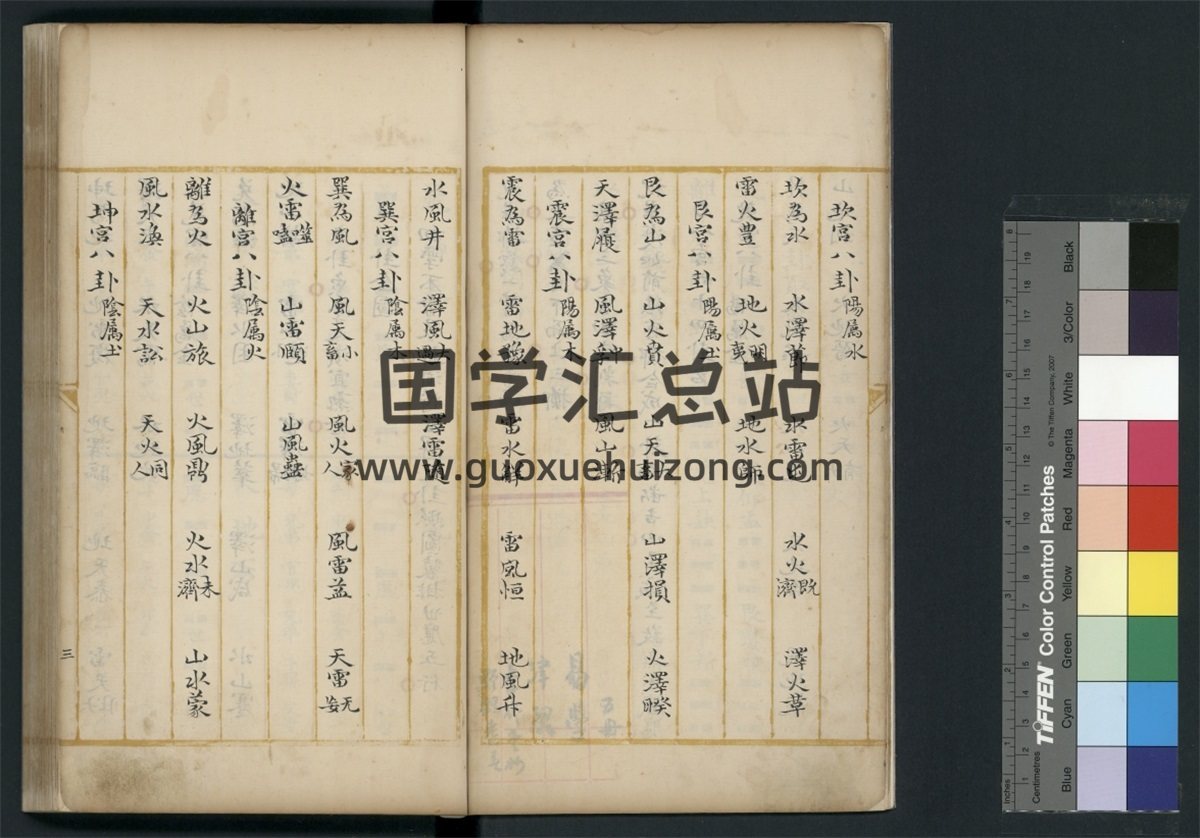 坎宮八卦陽属水
坎為水 水澤節 水雷屯 水火既濟 澤火革
雷火豊 地火明夷 地水師
艮宮八卦陽属土
艮為山 山火賁 山天大畜 山澤損 火澤睽
天澤履 風澤中孚 風山漸
震宮八卦陽属木
震為雷 雷地豫 雷水解 雷風恒 地風升
水風井 澤風大過 澤雷隨
巽宮八卦陰属木
巽為風 風天小畜 風火家人 風雷益 天雷无妄
火雷噬嗑 山雷頤 山風蠱
離宮八卦陰属火
離為火 火山旅 火風鼎 火水未濟 山水蒙
風水渙 天水訟 天火同人
坤宮八卦陰属土
三
国学汇总站
www.guoxuehuizong.com
TIFFEN Color Control Patches
© The Tiffen Company, 2007
Inches
Centimetres
Blue
Cyan
Green
Yellow
Red
Magenta
White
3/Color
Black